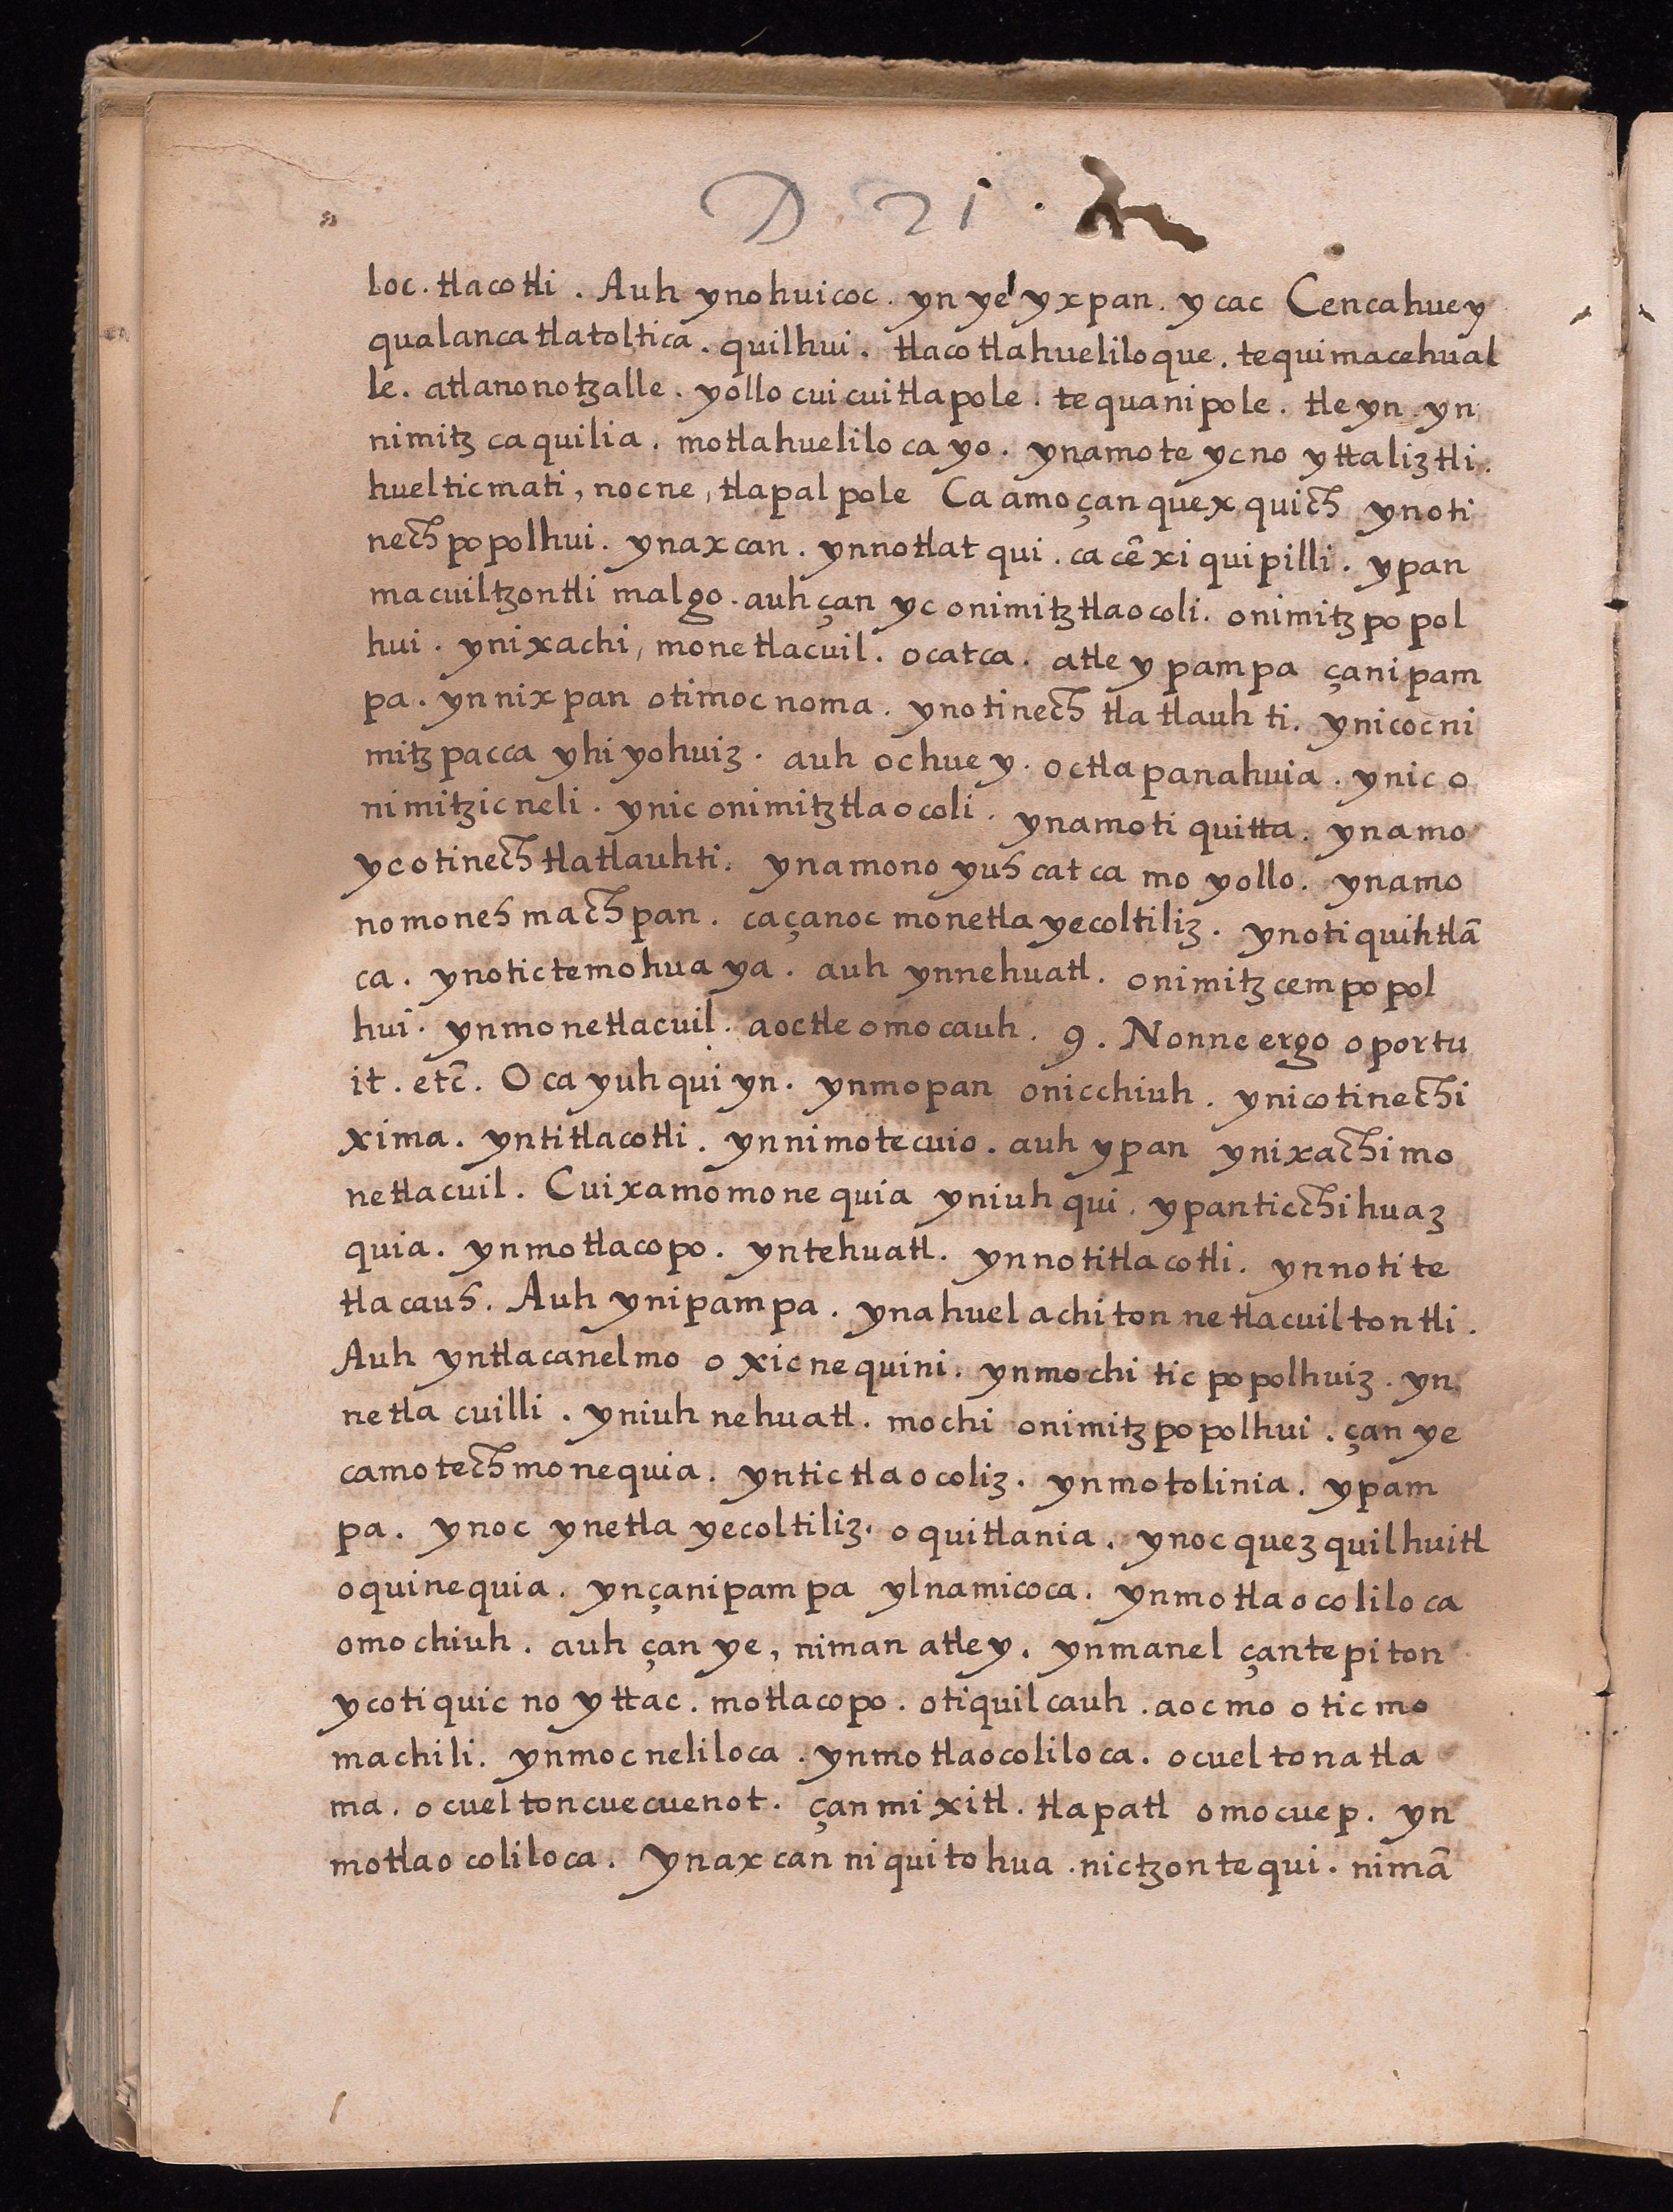 D. 21.
loc. tlacotli. Auh ynohuicoc. yn ye yxpan. ycac Cencahuey
qualanca tlatoltica. quilhui. tlacotlahueliloque. tequimacehual
le. atlanonotzalle. yollo cuicuitlapole. tequanipole. tleyn. yn
nimitz caquilia. motlahueliloca yo. ynamote ycno yttaliztli.
huelticmati, nocne, tlapalpole Ca amo çan quexquich ynoti
nechpopolhui. ynaxcan. ynnotlatqui. ca cē xiquipilli. ypan
macuiltzontli malgo. auh çan yc onimitztlaocoli. onimitzpopol
hui. ynixachi, monetlacuil. ocatca. atle ypampa çanipam
pa. ynnixpan otimocnoma. ynotinech tlatlauhti. ynicocni
mitzpacca yhiyohuiz. auh ochuey. octlapanahuia. ynic o
nimitzicneli. ynic onimitztlaocoli. ynamoti quitta. ynamo
ycotinechtlatlauhti. ynamono yuh catca mo yollo. ynamo
nomoneh machpan. caçanoc monetlayecoltiliz. ynotiquihtlā
ca. ynotictemohuaya. auh ynnehuatl. onimitzcempopol
hui. ynmonetlacuil. aoctle omocauh. 9. Nonne ergo oportu
it. etc̄. O ca yuhqui yn. ynmopan onicchiuh. ynicotinechi
xima. yntitlacotli. ynnimotecuio. auh ypan ynixachimo
netlacuil. Cuixamomonequia yniuhqui. ypanticchihuaz
quia. ynmotlacopo. yntehuatl. ynnotitlacotli. ynnotite
tlacauh. Auh ynipampa. ynahuel achiton netlacuiltontli.
Auh yntlacanelmo o xicnequini. ynmochi tic popolhuiz. yn
netlacuilli. yniuh nehuatl. mochi onimitzpopolhui. çan ye
camotechmonequia. yntictlaocoliz. ynmotolinia. ypam
pa. ynoc ynetla yecoltiliz. oquitlania. ynoc quezquilhuitl
oquinequia. ynçanipampa ylnamicoca. ynmotlaocoliloca
omochiuh. auh çan ye, niman atley. ynmanel çantepiton
ycotiquic no yttac. motlacopo. otiquilcauh. aocmo oticmo
machili. ynmocneliloca. ynmotlaocoliloca. ocueltonatla
ma. ocueltoncuecuenot. çan mixitl. tlapatl omocuep. yn
motlaocoliloca. Ynaxcan niquitohua. nictzontequi. nimā